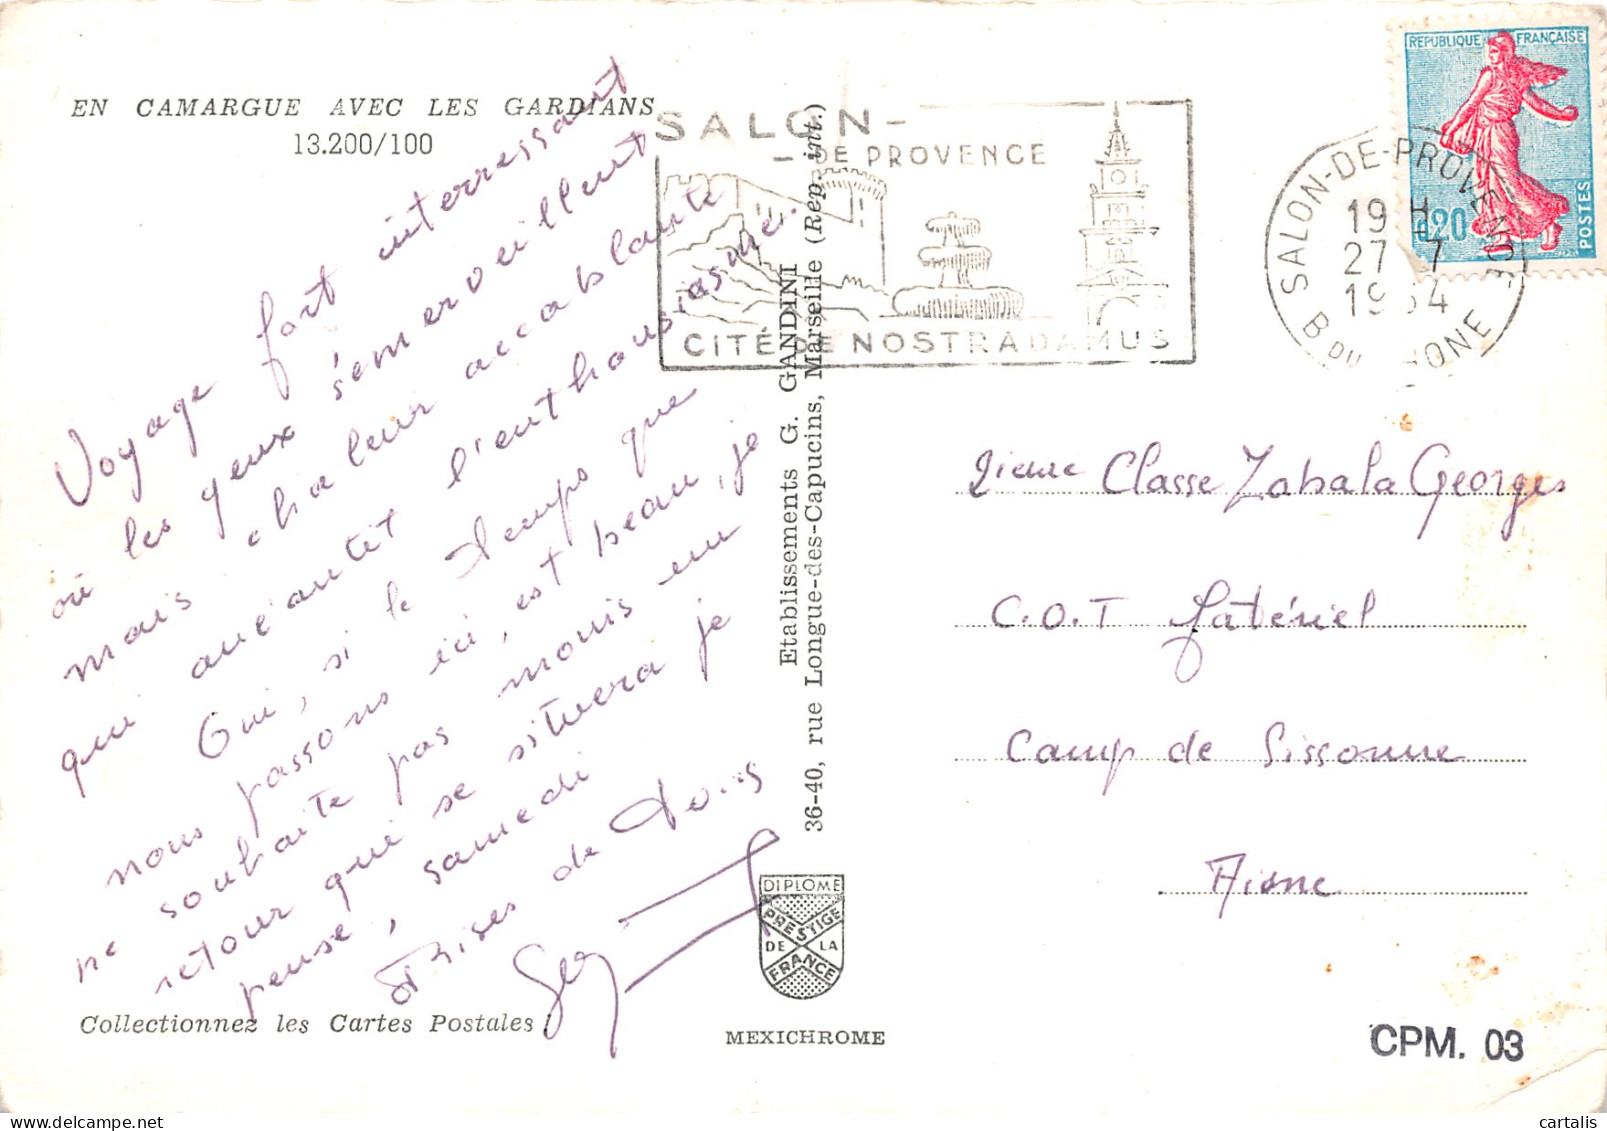 EN CAMARGUE AVEC LES GARDIANS
13.200/100
Voyage fort interressant
où les yeux s'emerveillent
mais chaleur accablante
qui anéantit l'enthousiasme.
Oui, si le temps que
nous passons ici, est beau, je
ne souhaite pas moins un
retour qui se situera je
pense, samedi
Bises de tous
Collectionnez les Cartes Postales !
Etablissements G. GANDINI
36-40, rue Longue-des-Capucins, Marseille (Rep. int.)
DIPLOME
PRESTIGE
DE LA
FRANCE
MEXICHROME
SALON-
-DE PROVENCE
CITÉ DE NOSTRADAMUS
SALON-DE-PROVENCE
19 H
27-7
1964
B DU RHONE
REPUBLIQUE FRANÇAISE
0,20
POSTES
2ieme Classe Zabala Georges
C.O.T Matériel
Camp de Sissonne
Aisne
CPM. 03
cartalis